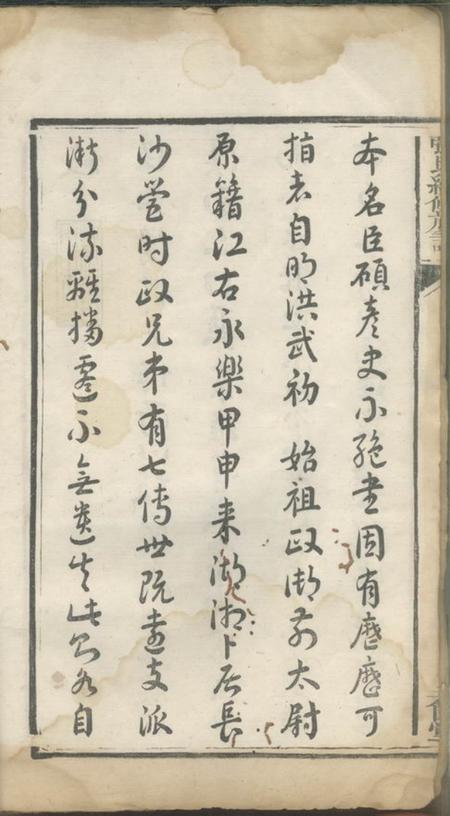 本名臣碩彥史不絕書固有歷歷可
指者自明洪武初 始祖政御前太尉
原籍江右永樂甲申来湖湘卜居長
沙營时政兄弟有七傳世既遠支派
漸分流離播遷不無遺失此公各自